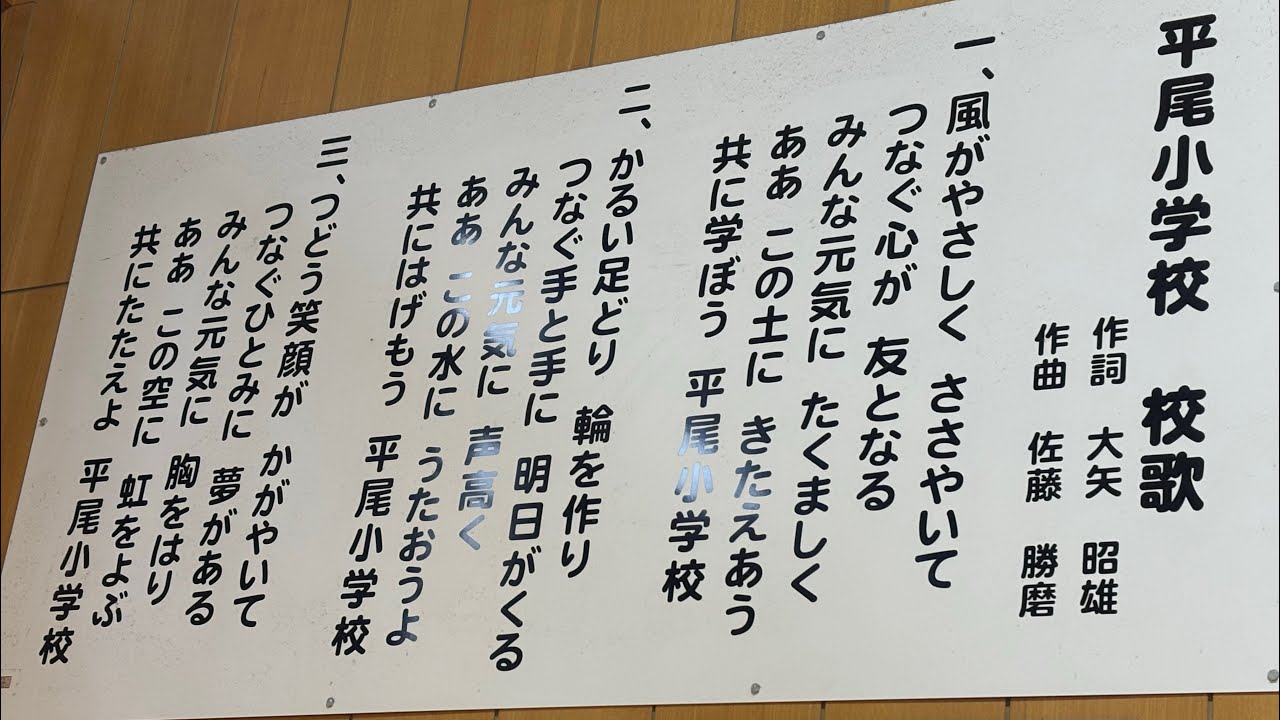 平尾小学校 校歌
作詞 大矢 昭雄
作曲 佐藤 勝磨
一、風がやさしく ささやいて
つなぐ心が 友となる
みんな元気に たくましく
ああ この土に きたえあう
共に学ぼう 平尾小学校
二、かるい足どり 輪を作り
つなぐ手と手に 明日がくる
みんな元気に 声高く
ああ この水に うたおうよ
共にはげもう 平尾小学校
三、つどう笑顔が かがやいて
つなぐひとみに 夢がある
みんな元気に 胸をはり
ああ この空に 虹をよぶ
共にたたえよ 平尾小学校